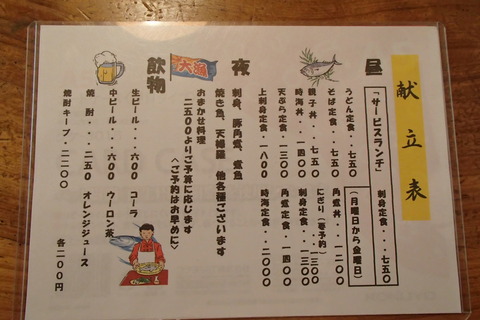 献立表
昼
「サービスランチ」
刺身定食・・・七五〇
(月曜日から金曜日)
うどん定食・・七五〇
角煮丼・・・一二〇〇
そば定食・・・七五〇
にぎり(要予約)
・・一三〇〇
親子丼・・・七五〇
刺身定食・・一三〇〇
時海丼・・一四〇〇
角煮定食・・一四〇〇
天ぷら定食・・一三〇〇
時海定食・・二〇〇〇
上刺身定食・・一八〇〇
夜
刺身、豚角煮、煮魚
焼き魚、天婦羅 他各種ございます
おまかせ料理
二五〇〇よりご予算に応じます
<ご予約はお早めに>
大漁
飲物
生ビール・・・六〇〇
コーラ
中ビール・・・六〇〇
ウーロン茶
焼酎・・・二五〇
オレンジジュース
焼酎キープ・・二二〇〇
各二〇〇円